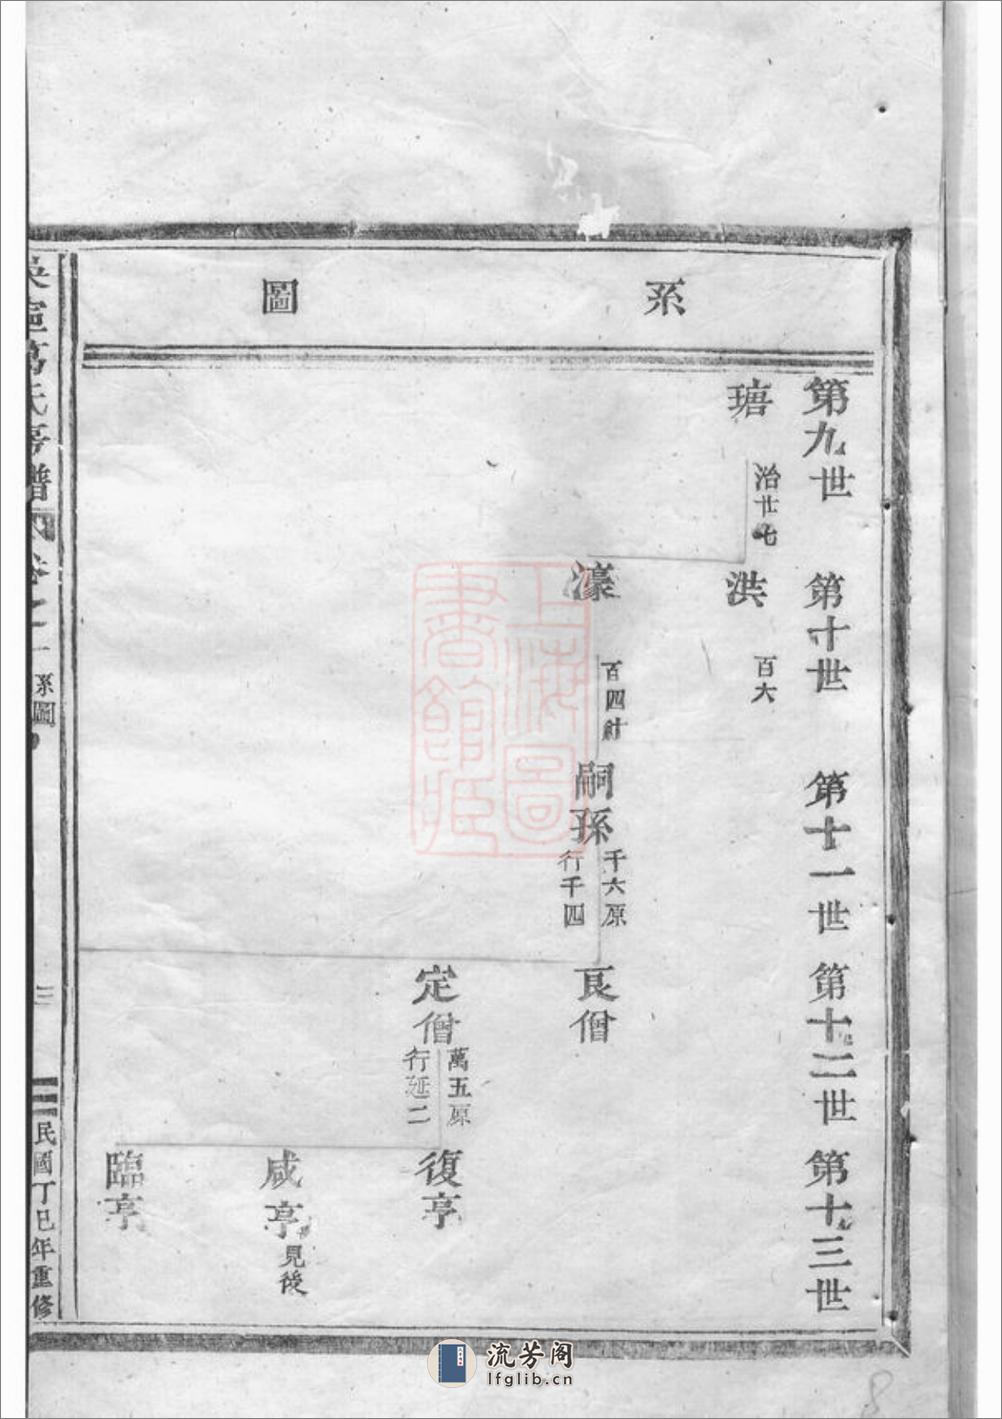 系圖
第九世
第十世
第十一世
第十二世
第十三世
瑭
治廿七
洪
百六
濠
百四
嗣孫
千六原
行千四
良僧
定僧
萬五原
行延二
復亭
咸亭
見後
臨亭
吳寧葛氏宗譜
卷之一
系圖
三
民國丁巳年重修
上海圖書館藏
流芳阁
lfglib.cn
8